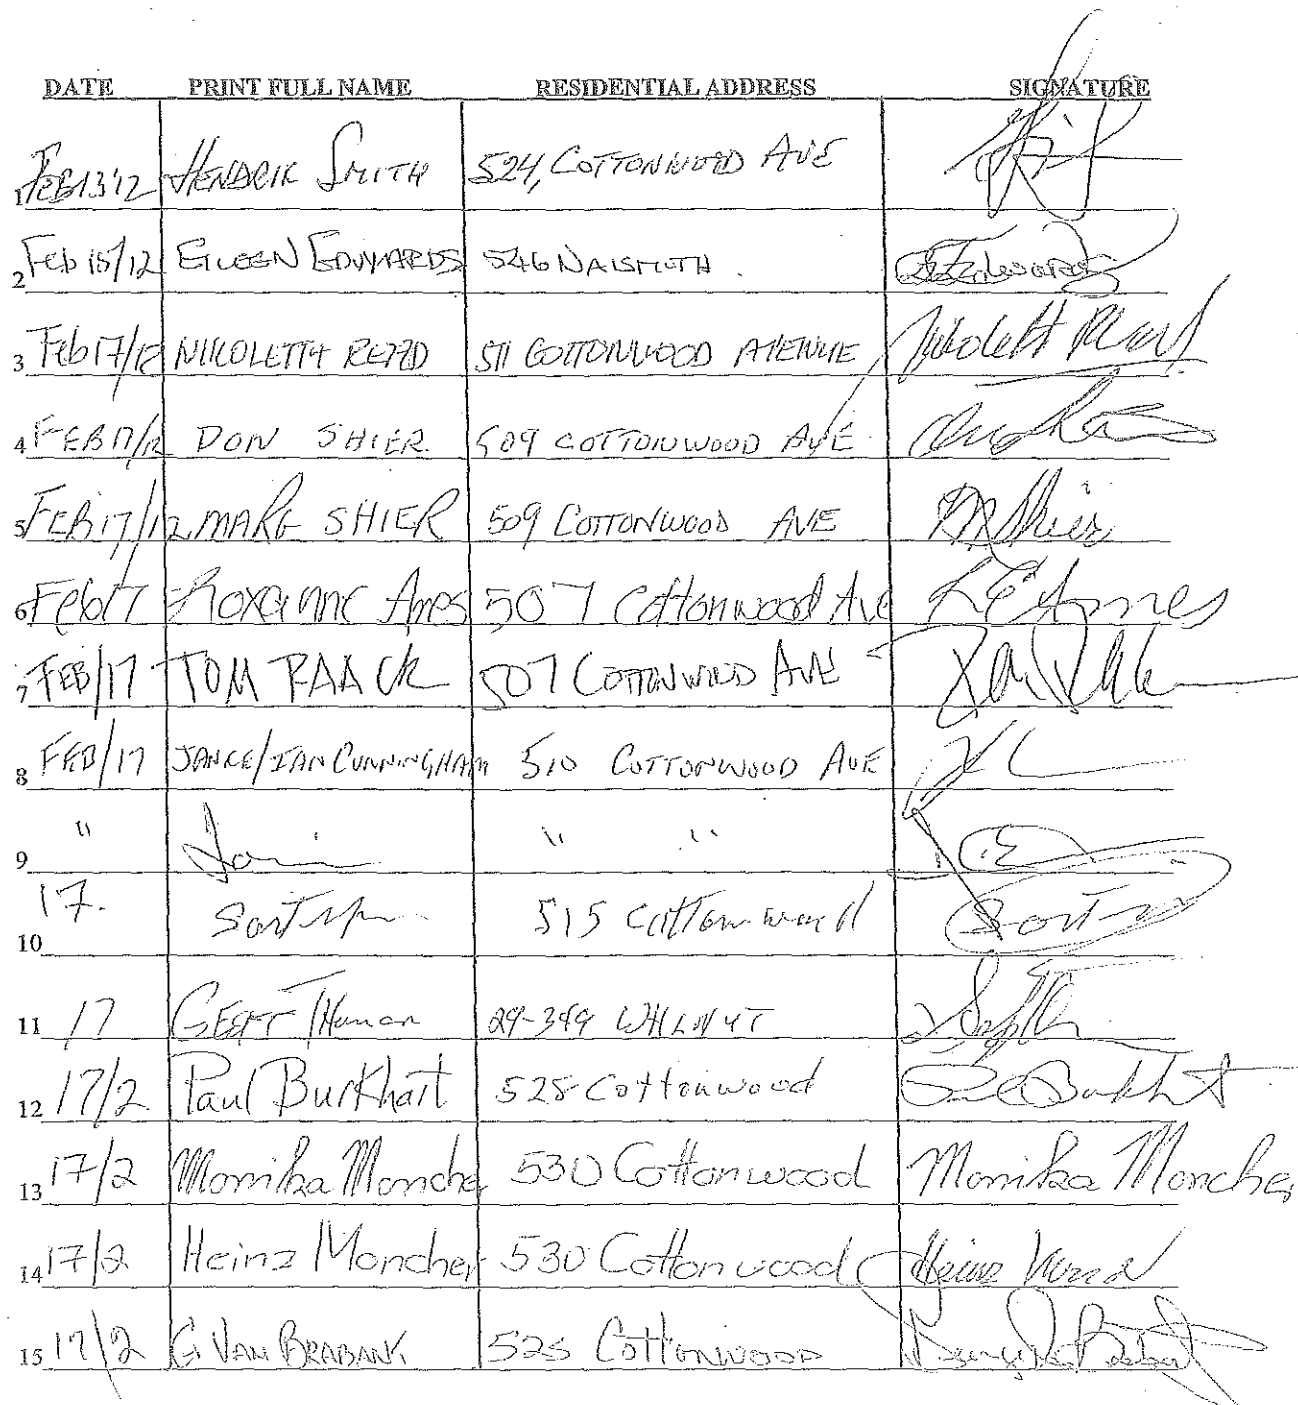 DATE PRINT FULL NAME RESIDENTIAL ADDRESS SIGNATURE
1 FEB 13'12 HENDRIK SMITH 524, COTTONWOOD AVE
2 Feb 15/12 EILEEN EDWARDS 546 NAISMITH. Edwards
3 Feb 17/12 511 COTTONWOOD AVENUE
4 FEB 17/12 DON SHIER. 509 COTTONWOOD AVE
5 FEB 17/12 MARG SHIER 509 COTTONWOOD AVE M Shier
6 Feb 17 Roxanne Ames 507 Cottonwood Ave R E Ames
7 FEB/17 TOM RAACK 507 COTTONWOOD AVE
8 FEB/17 JANICE/IAN CUNNINGHAM 510 COTTONWOOD AVE
9 " " "
10 17. 515 Cottonwood
11 17 29-399
12 17/2 Paul Burkhart 528 Cottonwood Burkhart
13 17/2 Monika Moncher 530 Cottonwood Monika Moncher
14 17/2 Heinz Moncher 530 Cottonwood Heinz
15 17/2 G VAN BRABANK 525 COTTONWOOD